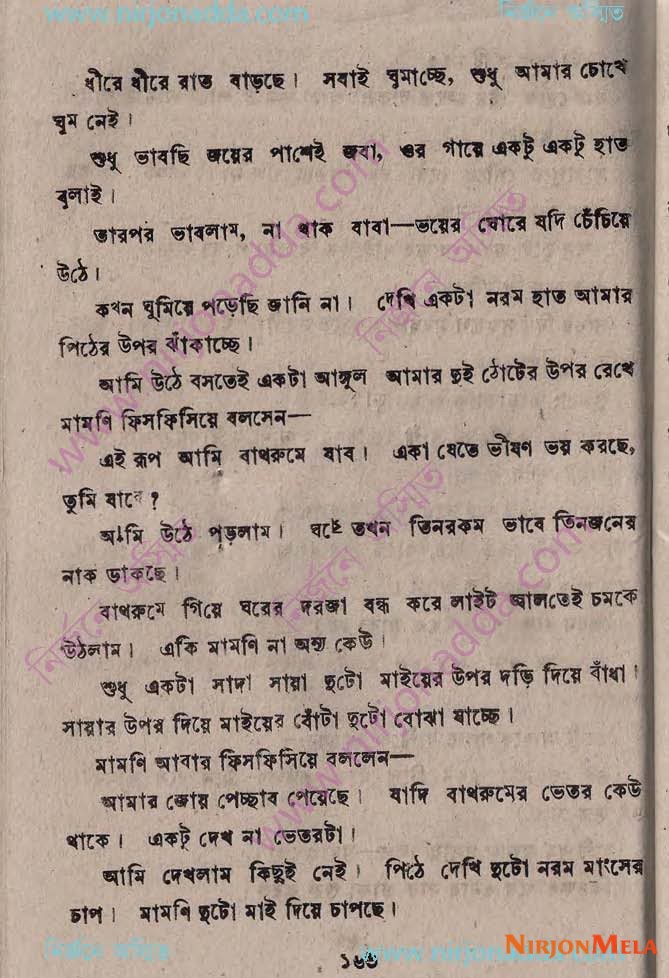 www.nirjonadda.com নির্জনে অস্মিত
ধীরে ধীরে রাত বাড়ছে। সবাই ঘুমাচ্ছে, শুধু আমার চোখে
ঘুম নেই।
শুধু ভাবছি জয়ের পাশেই জবা, ওর গায়ে একটু একটু হাত
বুলাই।
তারপর ভাবলাম, না থাক বাবা—ভয়ের চোরে যদি চেঁচিয়ে
উঠে।
কখন ঘুমিয়ে পড়েছি জানি না। দেখি একটা নরম হাত আমার
পিঠের উপর ঝাঁকাচ্ছে।
আমি উঠে বসতেই একটা আঙ্গুল আমার দুই ঠোটের উপর রেখে
মামণি ফিসফিসিয়ে বলসেন—
এই রূপ আমি বাথরুমে যাব। একা যেতে ভীষণ ভয় করছে,
তুমি যাবে?
আমি উঠে পড়লাম। ঘরে তখন তিনরকম ভাবে তিনজনের
নাক ডাকছে।
বাথরুমে গিয়ে ঘরের দরজা বন্ধ করে লাইট জালতেই চমকে
উঠলাম। একি মামণি না অন্য কেউ।
শুধু একটা সাদা সায়া দুটো মাইয়ের উপর দড়ি দিয়ে বাঁধা।
সায়ার উপর দিয়ে মাইয়ের বোঁটা দুটো বোঝা যাচ্ছে।
মামণি আবার ফিসফিসিয়ে বললেন—
আমার জোয় পেচ্ছাব পেয়েছে। যাদি বাথরুমের ভেতর কেউ
থাকে। একটু দেখ না ভেতরটা।
আমি দেখলাম কিছুই নেই। পিঠে দেখি দুটো নরম মাংসের
চাপ। মামণি দুটো মাই দিয়ে চাপছে।
নির্জনে অস্মিত www.nirjonadda.com
১৬৬
NIRJONMELA